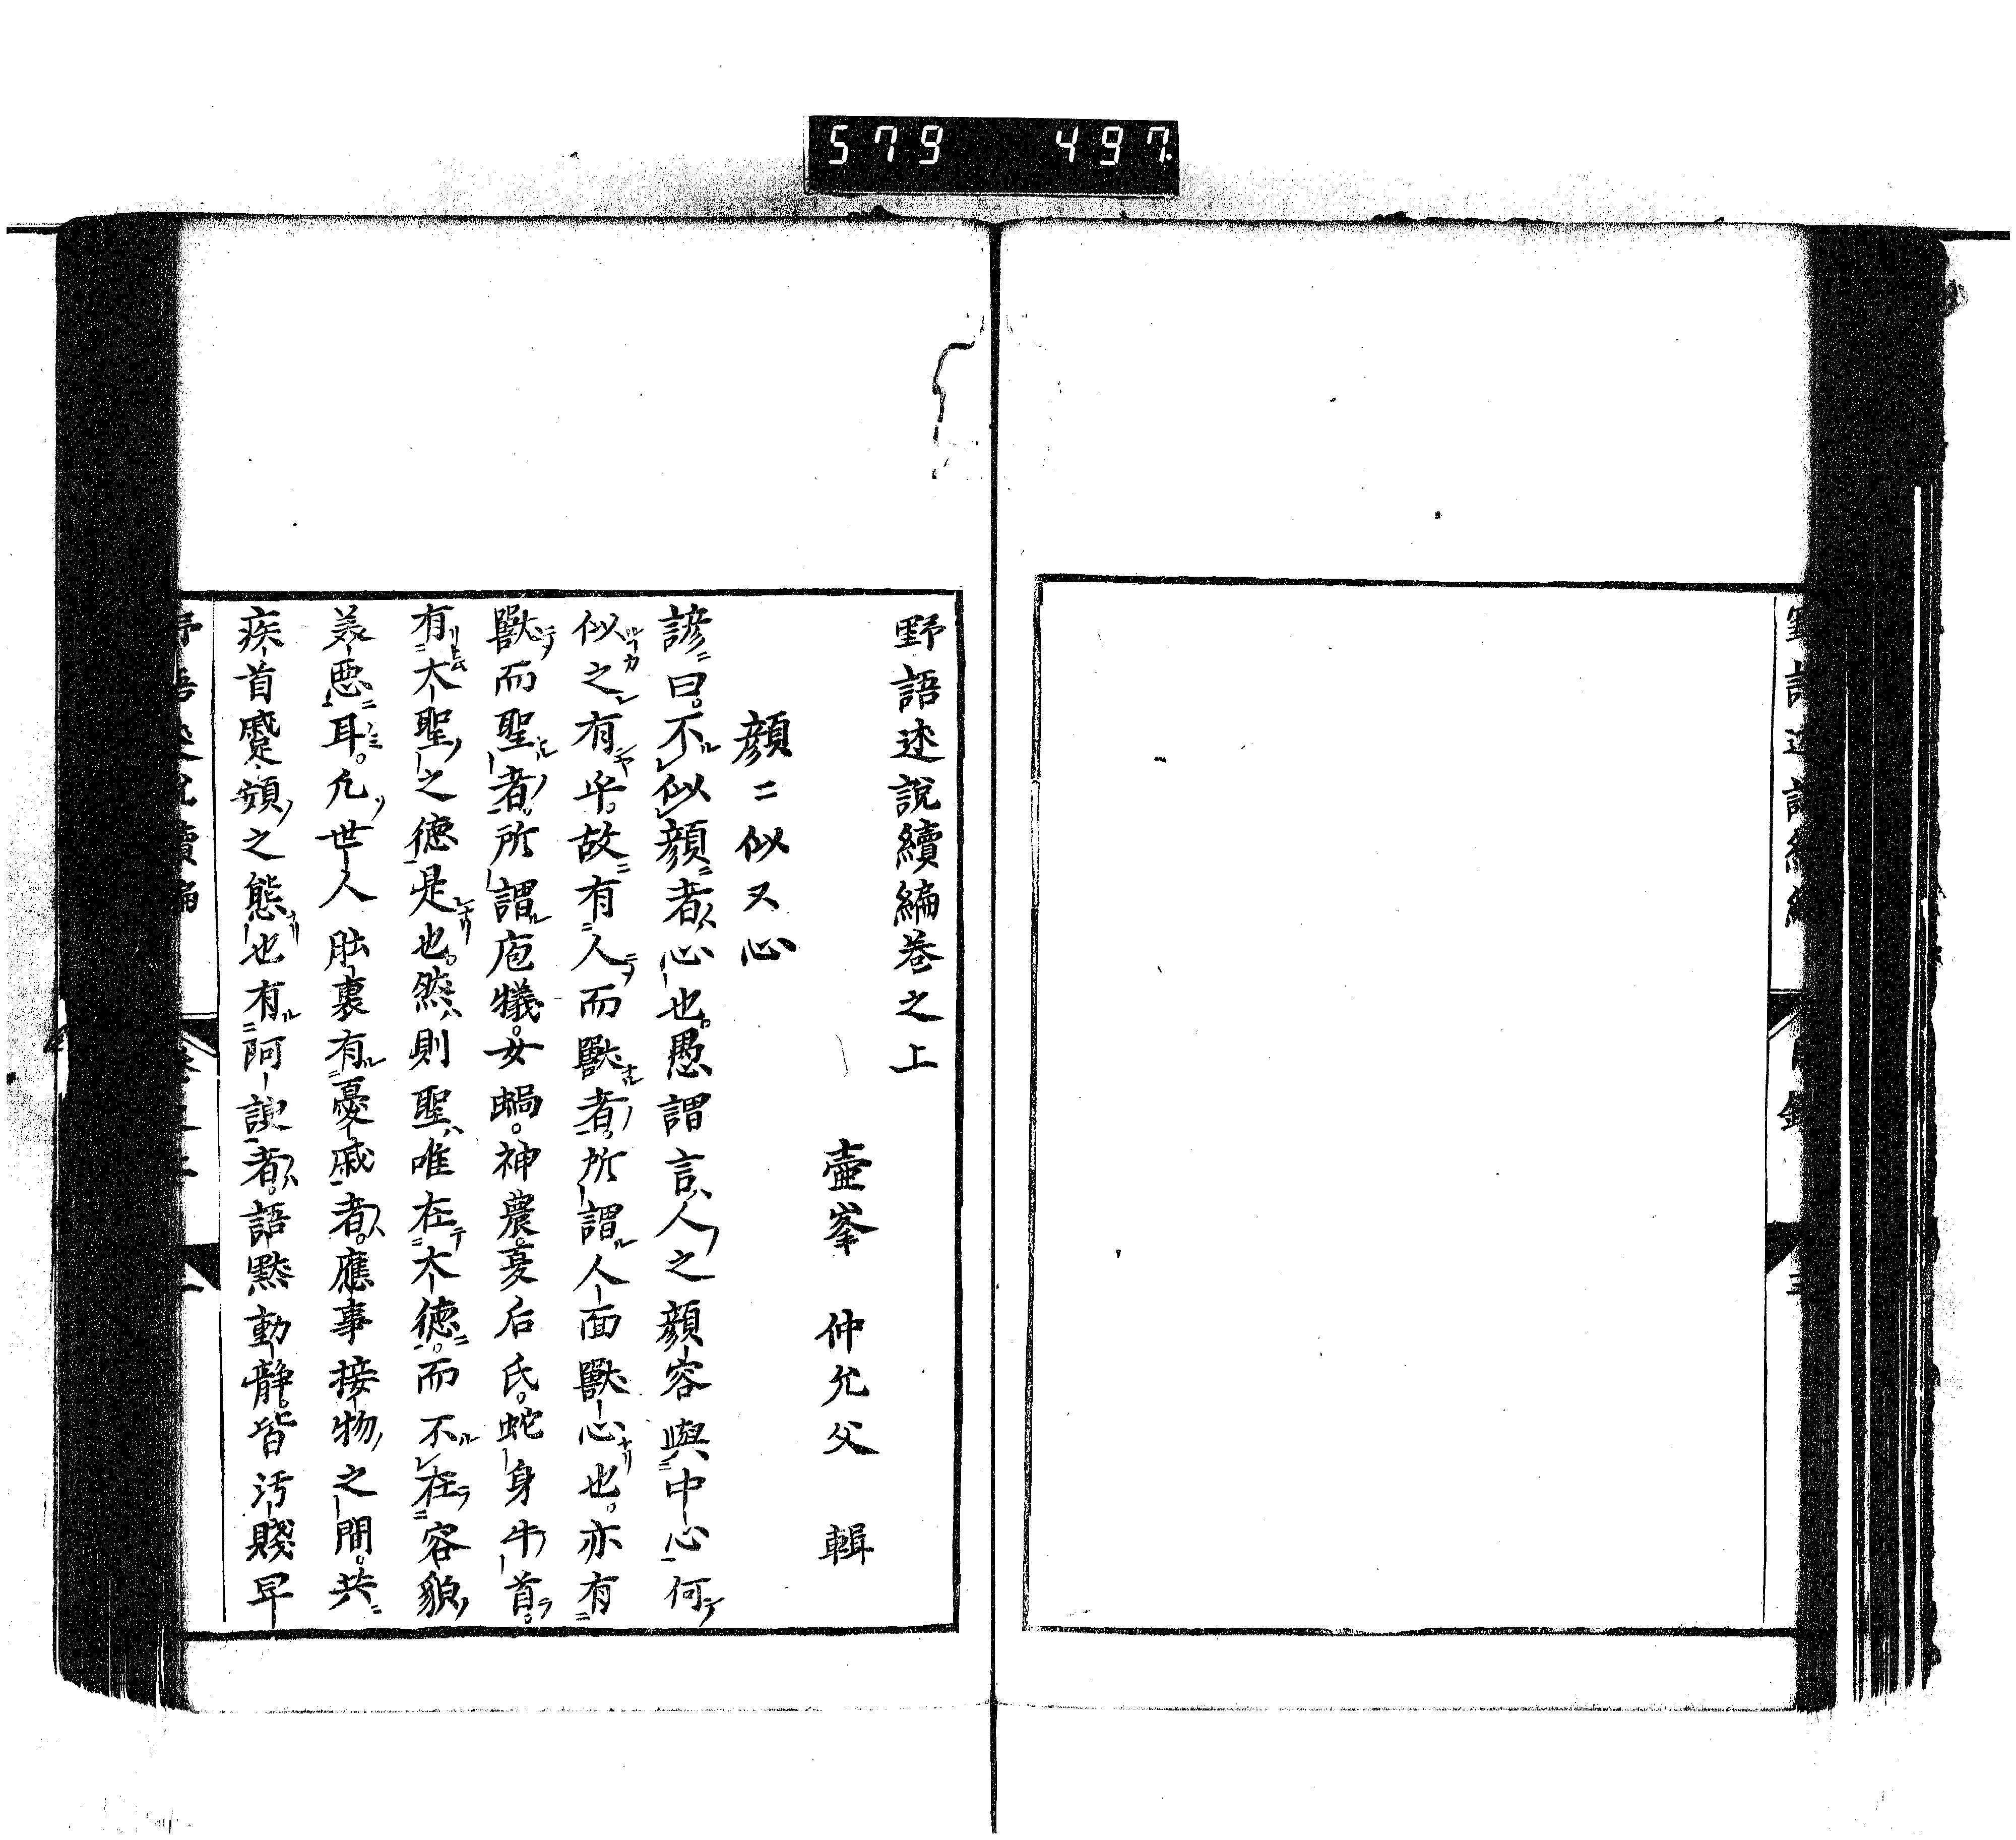 579 497
野語述說續編巻之上
壷峯 仲允父 輯
顔ニ似又心
諺曰。不似顔者心也。愚謂言人之顔容與中心何
似之有乎。故有人而獸者。所謂人面獸心也。亦有
獸而聖者。所謂庖犧。女蝸。神農。夏后氏。蛇身牛首。
有大聖之德是也。然則聖唯在大德。而不在容貌
美惡耳。凢世人肚裏有憂戚者。應事接物之間。共
疾首蹙頞之態也有阿諛者。語默動靜。皆汚賤卑